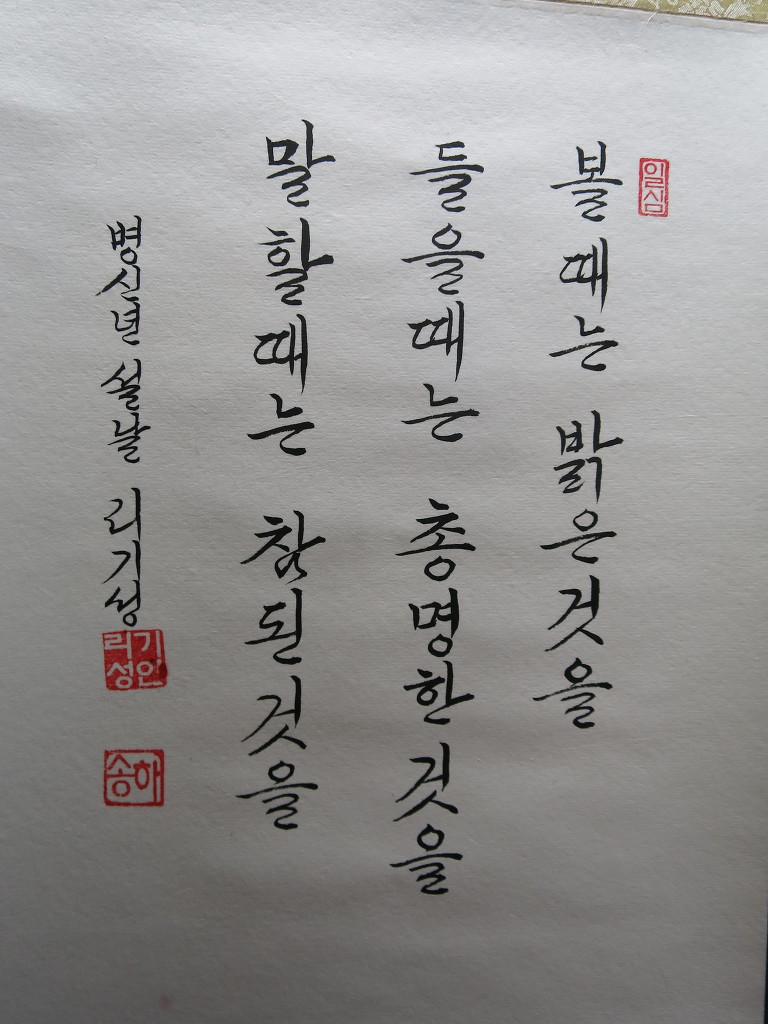 일심
볼때는 밝은것을
들을때는 총명한것을
말할때는 참된것을
병신년 설날 리기성
리성기인
송하